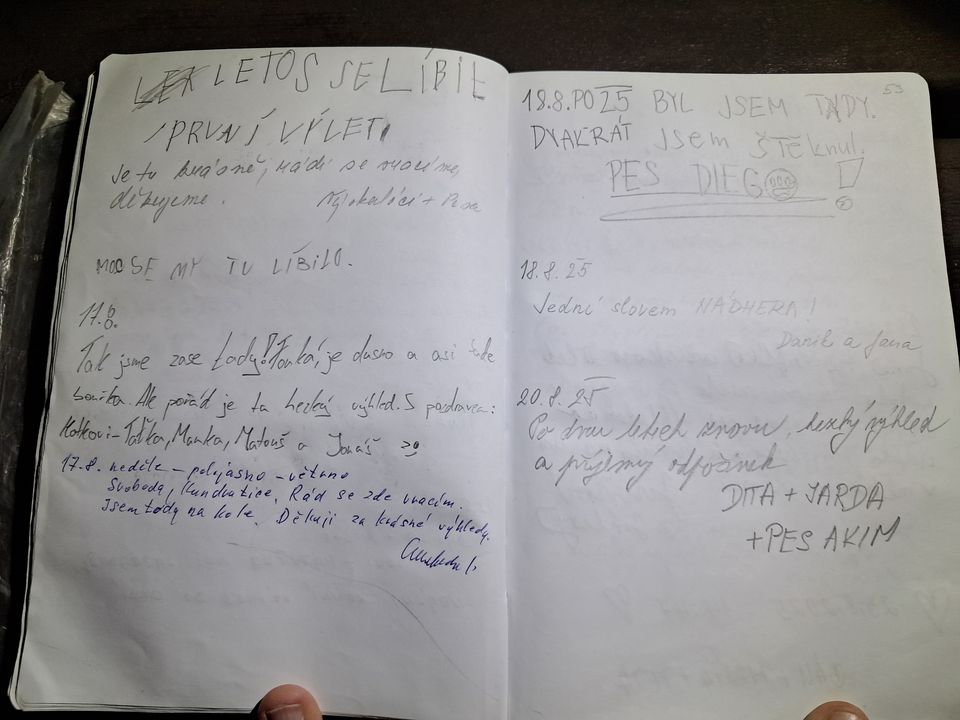 LETOS SE LÍBIL
PRVNÍ VÝLET
Je tu krásně, rádi se vracíme,
děkujeme. + Pesa
MOC SE MY TU LÍBILO.
17.8.
Tak jsme zase tady! Fouká, je dusno a asi bude
bouřka. Ale pořád je tu hezký výhled. S pozdravem:
Kotkovi - Taťka, Mamka, Matouš a Jonáš
17.8. neděle - polojasno - větrno
Svoboda, Kundratice, Rád se zde vracím.
Jsem tady na kole. Děkuji za krásné výhledy.
53
18.8. PO 25 BYL JSEM TADY.
DVAKRÁT JSEM ŠTĚKnul.
PES DIEGO !
18.8.25
Jední slovem NÁDHERA!
Daník a Jana
20.8.25
Po dvou letech znovu, hezký výhled
a příjemný odpočinek
DITA + JARDA
+ PES AKIM